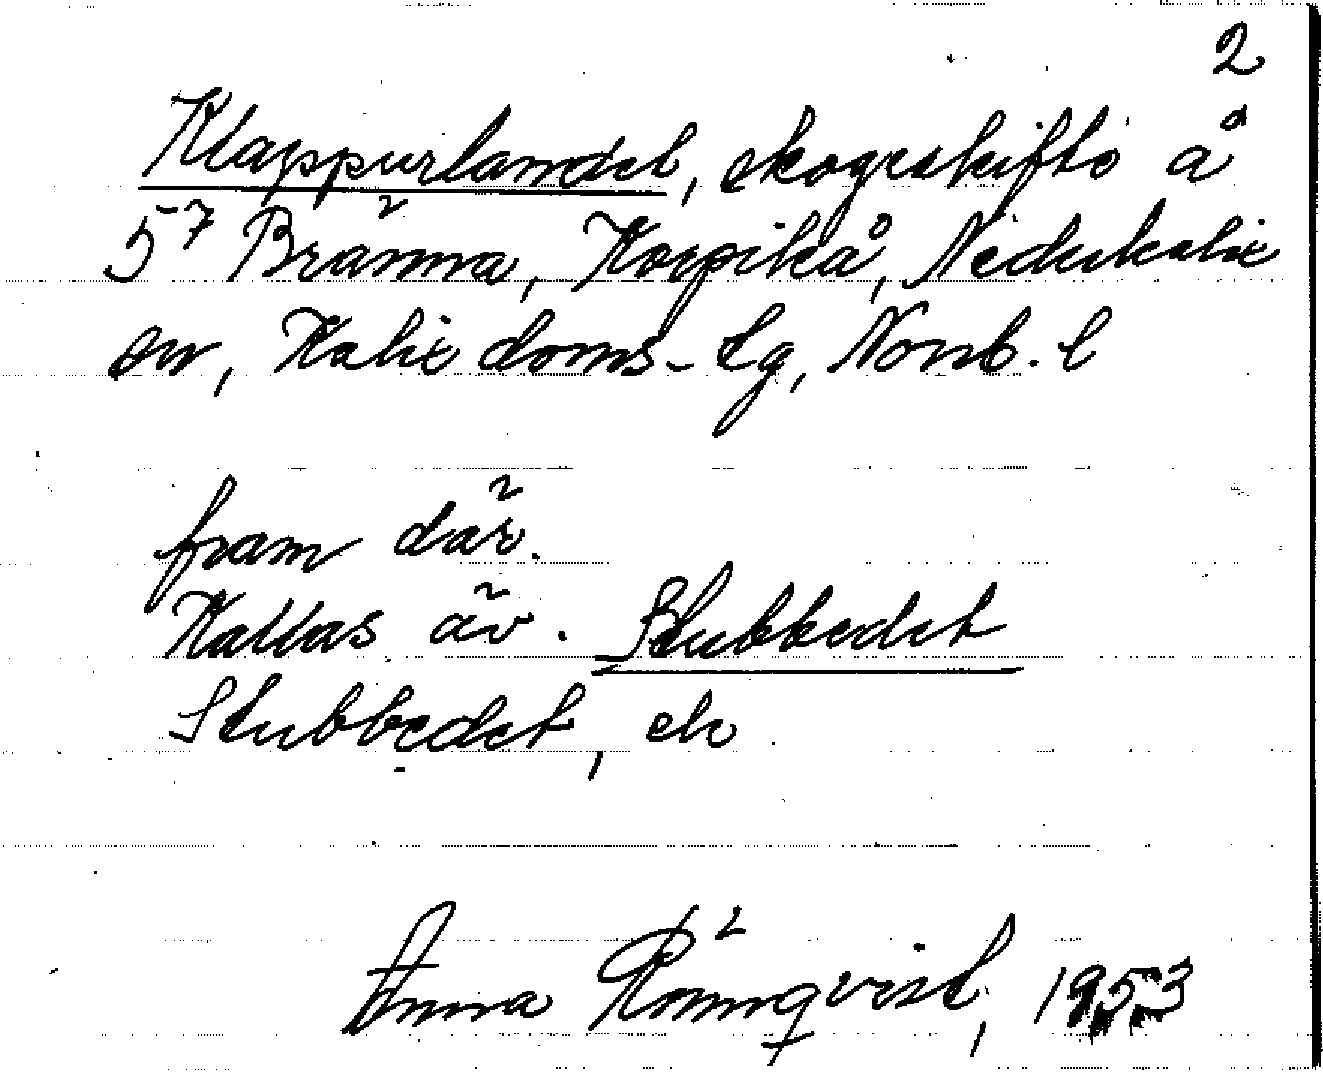 2
Klappurlandet, skogsskifte å
5⁷ Bränna, Korpikå, Nederkalix
sn, Kalix doms-lg, Norrb. l
fram där.
Kallas äv. Stubbedet
Stubbedet, ek
Anna Rönnqvist, 1953